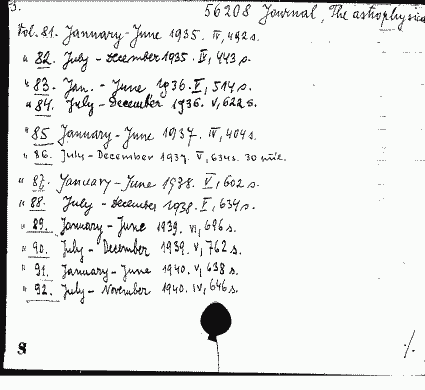 3. 56208 Journal, The astrophysica
Vol. 81. January-June 1935. IV, 492 s.
" 82. July - December 1935. IV, 443 s.
" 83. Jan. - June 1936. V, 514 s.
" 84. July - December 1936. V, 622 s.
" 85 January - June 1937. IV, 404 s.
" 86. July - December 1937. V, 634 s. 30 mil.
" 87. January - June 1938. V, 602 s.
" 88. July - December 1938. V, 634 s.
" 89. January - June 1939. VI, 696 s.
" 90. July - December 1939. V, 762 s.
" 91. January - June 1940. V, 638 s.
" 92. July - November 1940. IV, 646 s.
8 ./.